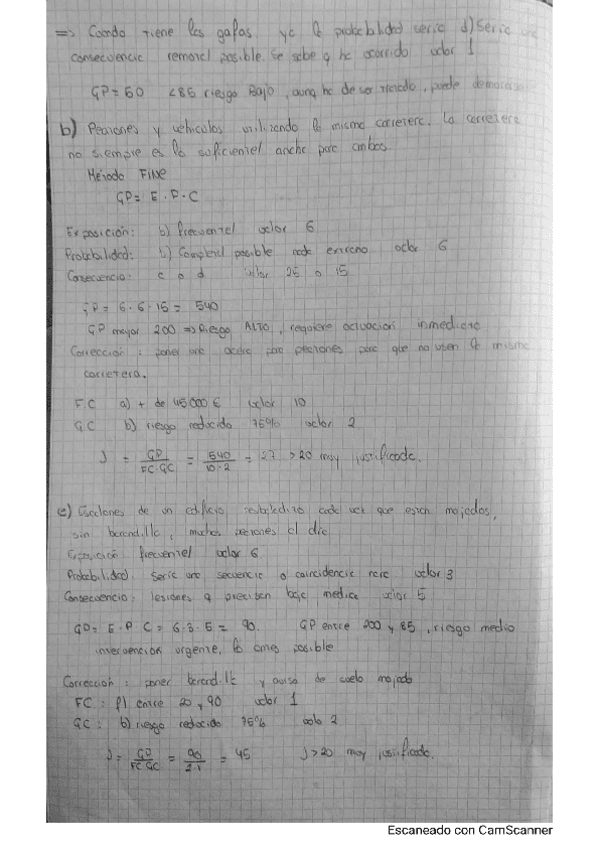 => Cuando tiene las gafas ya la probabilidad sería d) Sería una
consecuencia remota posible. Se sabe q ha ocurrido valor 1
GP = 60 < 85 riesgo Bajo, aunq ha de ser tratado, puede
b) Peatones y vehículos utilizando la misma carretera. La carretera
no siempre es lo suficiente ancha para ambos.
Método FINE
GP = E · P · C
Exposición: b) frecuente valor 6
Probabilidad: b) Complet posible nada extraño valor 6
Consecuencia: c o d valor 25 o 15
GP = 6 · 6 · 15 = 540
GP mayor 200 => Riesgo ALTO, requiere actuación inmediata
Corrección: poner una acera para peatones para que no usen la misma
carretera.
FC a) + de 45000 € valor 10
GC b) riesgo reducido 75% valor 2
J = GP / FC·GC = 540 / 10·2 = 27 > 20 muy justificada.
c) Escalones de un edificio resbaladizo cada vez que están mojados,
sin barandilla, muchas personas al día
Exposición frecuente valor 6
Probabilidad: Sería una secuencia o coincidencia rara valor 3
Consecuencia: lesiones q precisan baja médica valor 5
GP = E · P · C = 6 · 3 · 5 = 90. GP entre 200 y 85, riesgo medio
intervención urgente, lo antes posible
Corrección: poner barandilla y aviso de suelo mojado
FC: f) entre 20 y 90 valor 1
GC: b) riesgo reducido 75% valo 2
J = GP / FC·GC = 90 / 2·1 = 45 J > 20 muy justificada.
Escaneado con CamScanner